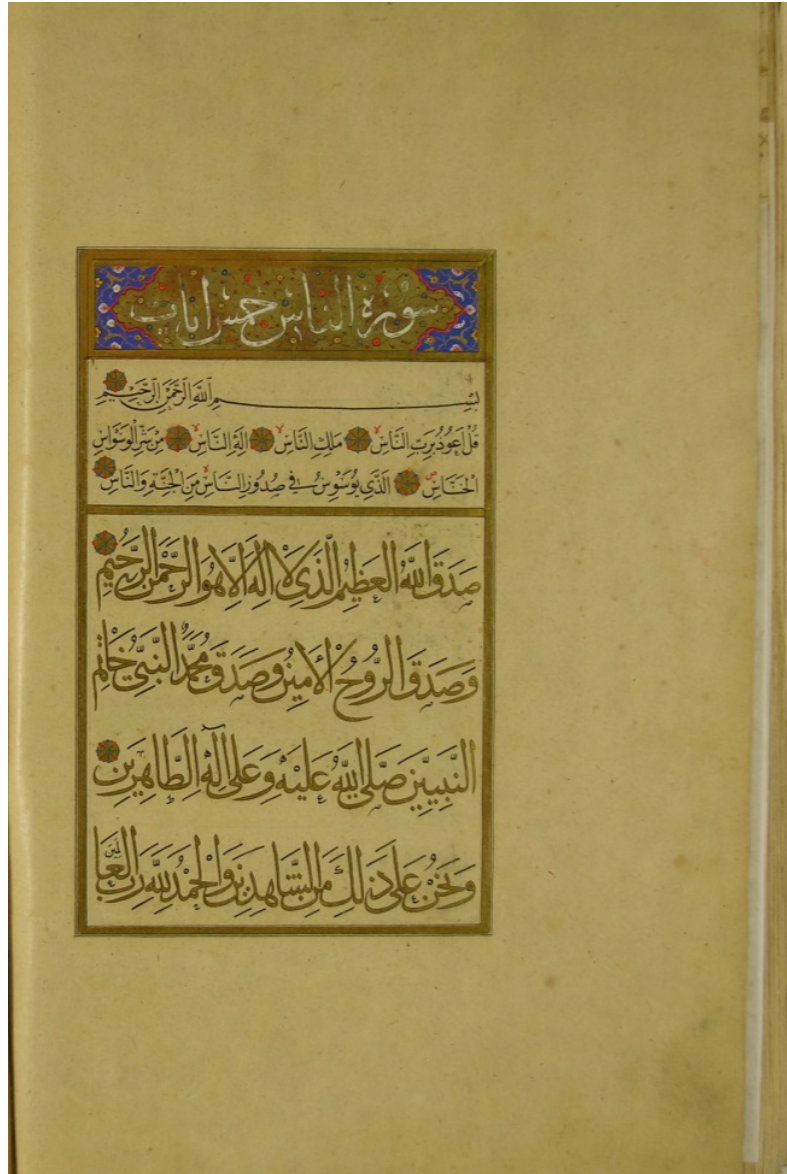 سورة الناس خمس ايات
بِسْمِ اللَّهِ الرَّحْمَنِ الرَّحِيمِ
قُلْ اَعُوذُ بِرَبِّ النَّاسِ لا مَلِكِ النَّاسِ لا اِلَهِ النَّاسِ لا مِنْ شَرِّ الْوَسْوَاسِ
الْخَنَّاسِ ص الَّذِي يُوَسْوِسُ فِي صُدُورِ النَّاسِ لا مِنَ الْجِنَّةِ وَالنَّاسِ
صَدَقَ اللَّهُ الْعَظِيمُ الَّذِي لَا اِلَهَ اِلَّا هُوَ الرَّحْمَنُ الرَّحِيمُ
وَصَدَقَ الرُّوحُ الْأَمِينُ وَصَدَقَ مُحَمَّدٌ النَّبِيُّ خَاتِمُ
النَّبِيِّينَ صَلَّى اللَّهُ عَلَيْهِ وَعَلَى آلِهِ الطَّاهِرِينَ
وَنَحْنُ عَلَى ذَلِكَ مِنَ الشَّاهِدِينَ وَالْحَمْدُ لِلَّهِ رَبِّ الْعَالَمِينَ